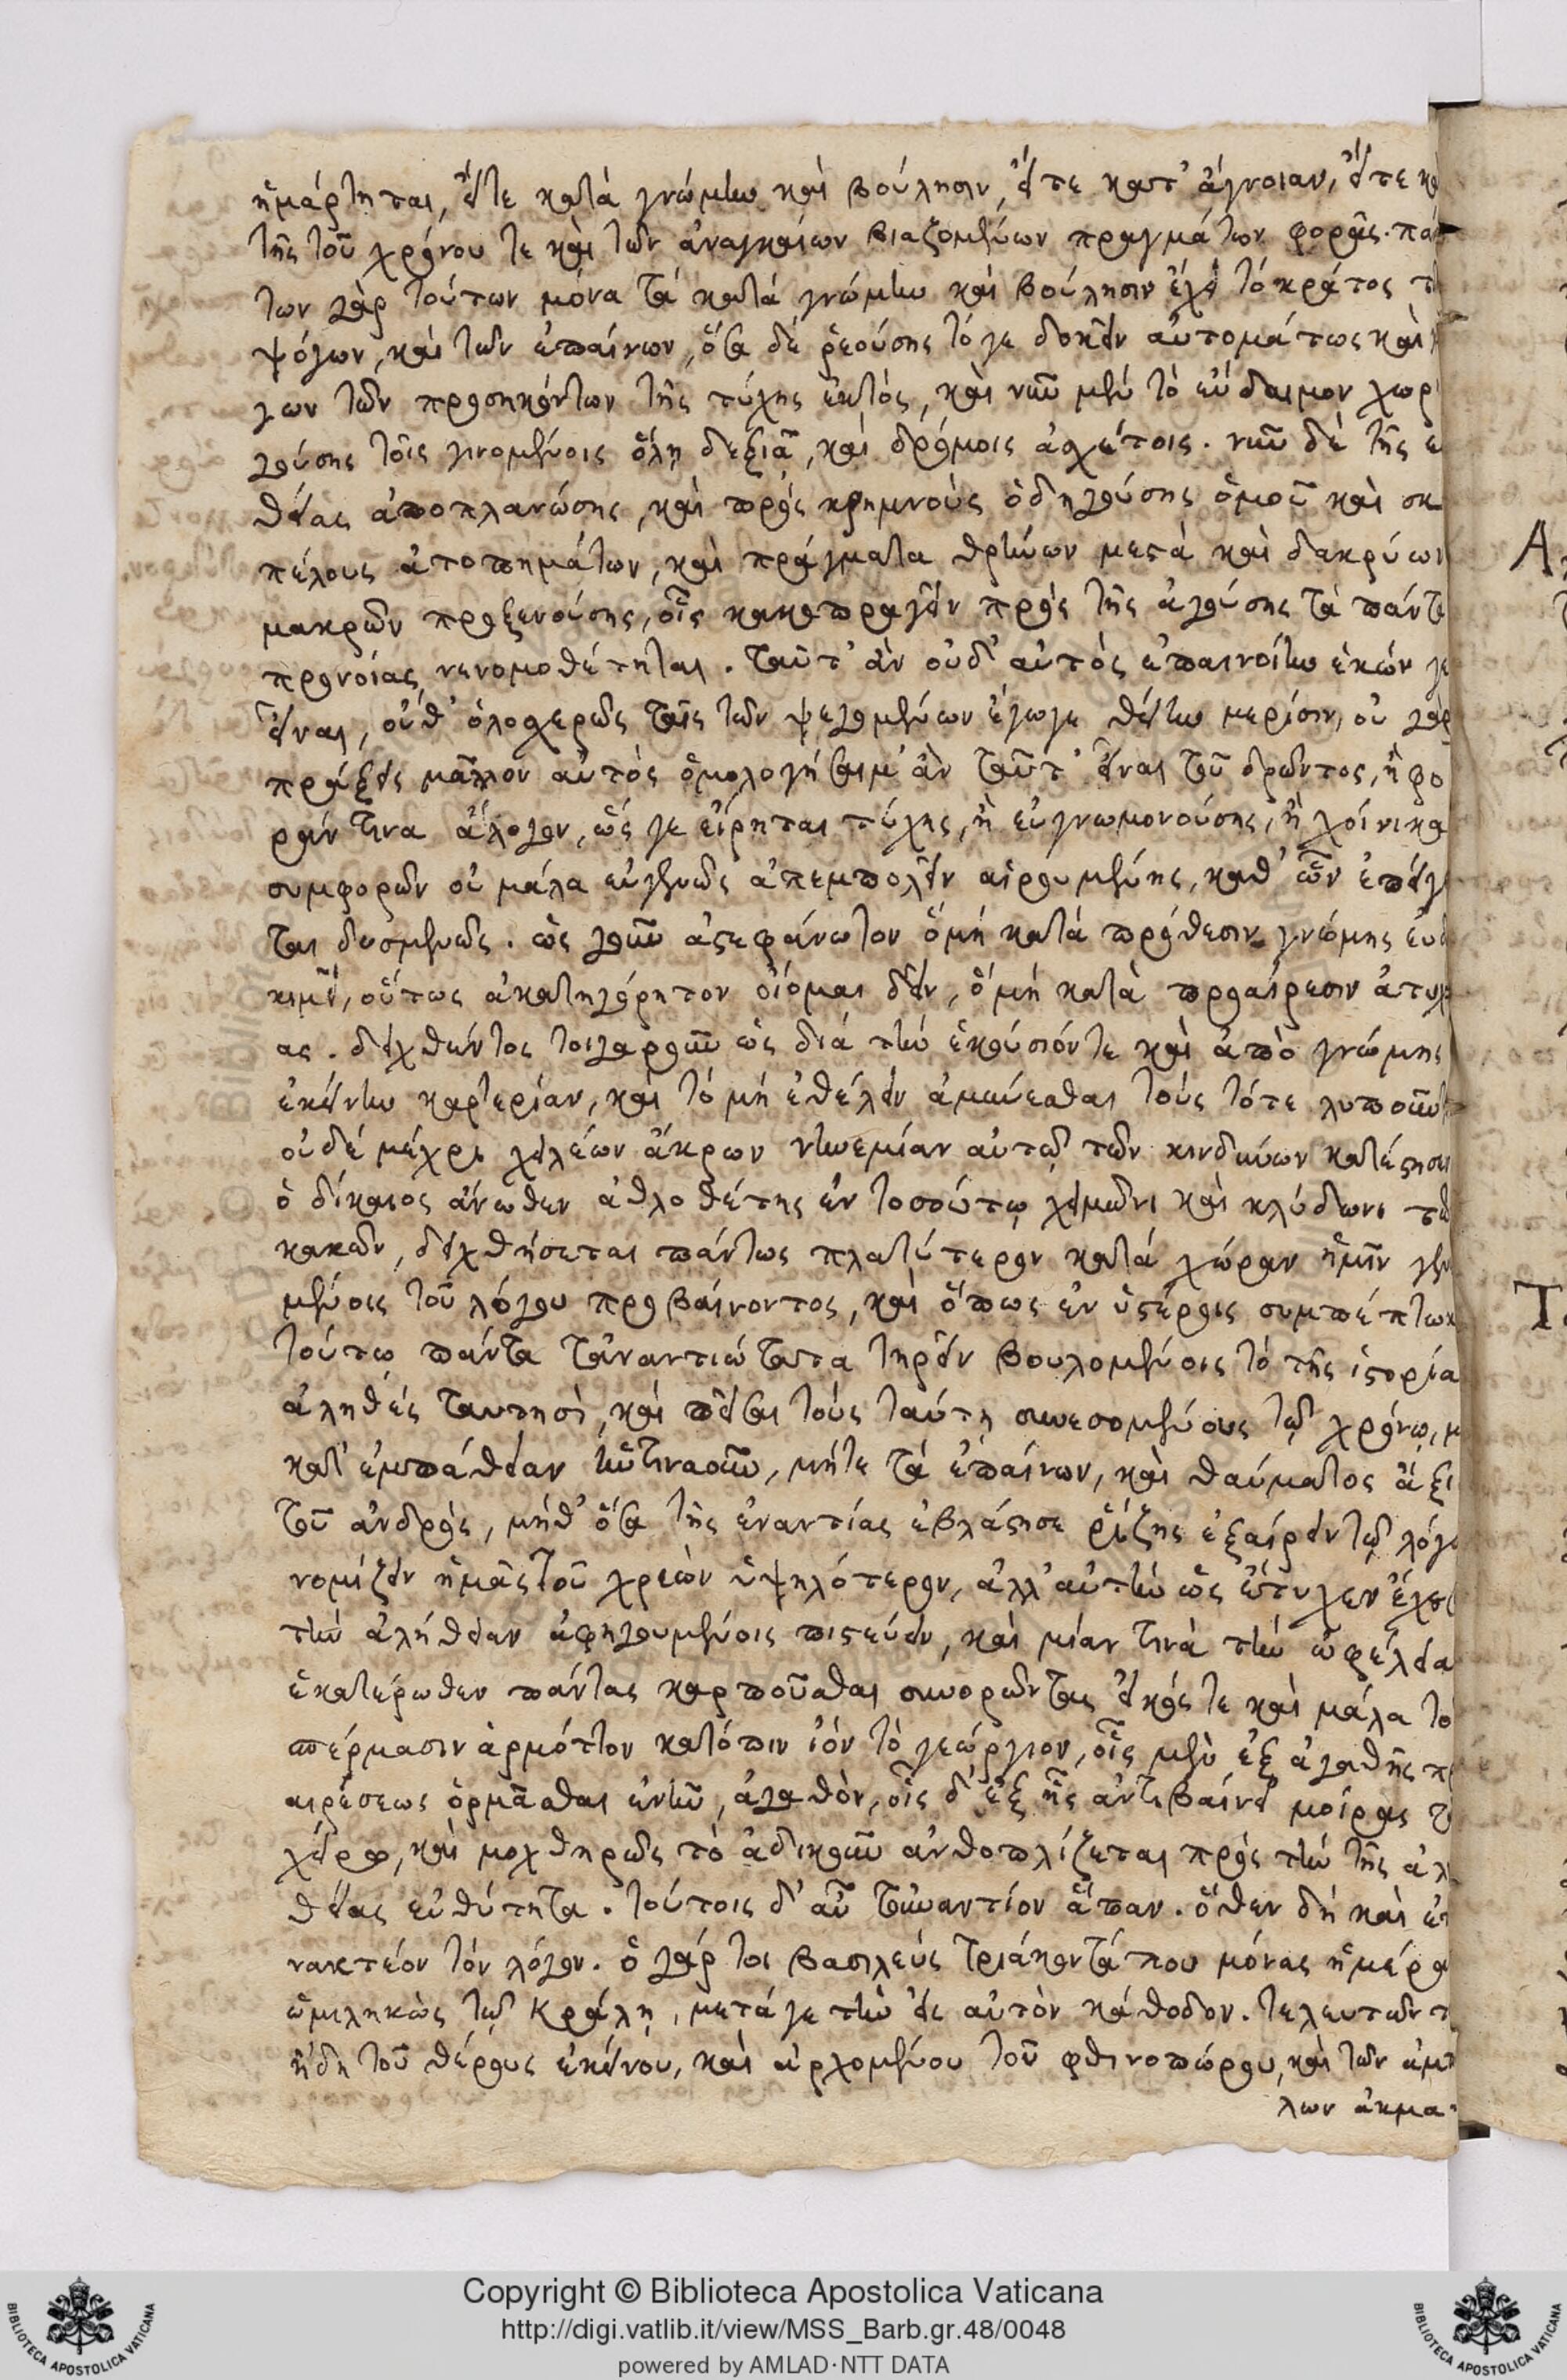 ἡμάρτηται, εἴτε κατὰ γνώμην καὶ βούλησιν, εἴτε κατ' ἄγνοιαν, εἴτε
τῆς τοῦ χρόνου τε καὶ τῶν ἀναγκαίων βιαζομένων πραγμάτων φορᾶς. πάν
των γὰρ τούτων μόνα τὰ κατὰ γνώμην καὶ βούλησιν ἔχει τὸ κράτος τῶν
ψόγων, καὶ τῶν ἐπαίνων, ὅσα δὲ ῥεούσης τό γε δοκεῖν αὐτομάτως καὶ
γων τῶν προσηκόντων τῆς τύχης ἐκτὸς, καὶ νῦν μὲν τὸ εὔδαιμον χορη
γούσης τοῖς γινομένοις ὅλῃ δεξιᾷ, καὶ δρόμοις ἀσχέτοις. νῦν δὲ τῆς
θείας ἀποπλανώσης, καὶ πρὸς κρημνοὺς ὁδηγούσης ὁμοῦ καὶ σκο
πέλους ἀτοπημάτων, καὶ πράγματα θρήνων μετὰ καὶ δακρύων
μακρῶν προξενούσης, οἷς κακοπραγεῖν πρὸς τῆς ἀγούσης τὰ πάντα
προνοίας νενομοθέτηται. ταῦτ' ἂν οὐδ' αὐτὸς ἐπαινοίην ἑκών γε
εἶναι, οὔθ' ὁλοσχερῶς ταῖς τῶν ψεγομένων ἔγωγε θείην μερίσιν, οὐ γὰρ
πράξεις μᾶλλον αὐτὸς ὁμολογήσαιμ' ἂν ταῦτ' εἶναι τοῦ δρῶντος, ἢ φο
ράν τινα ἄλογον, ὥς γε εἴρηται τύχης, ἢ εὐγνωμονούσης, ἢ χοίνικα
συμφορῶν οὐ μάλα εὐγενῶς ἀπεμπολεῖν αἱρουμένης, καθ' ὧν ἐπείγε
ται δυσμενῶς. ὡς γοῦν ἀστεφάνωτον ὃ μὴ κατὰ πρόθεσιν γνώμης εὐδο
κιμεῖ, οὕτως ἀκατηγόρητον οἴομαι δεῖν, ὃ μὴ κατὰ προαίρεσιν ἀτυχί
ας. δειχθέντος τοιγαροῦν ὡς διὰ τὴν ἑκούσιόν τε καὶ ἀπὸ γνώμης
ἐκείνην καρτερίαν, καὶ τὸ μὴ ἐθέλειν ἀμύνεσθαι τοὺς τότε λυποῦντ
οὐδὲ μέχρι χειλέων ἄκρων νηνεμίαν αὐτῷ τῶν κινδύνων κατέστησεν
ὁ δίκαιος ἄνωθεν ἀθλοθέτης ἐν τοσούτῳ χειμῶνι καὶ κλύδωνι τῶν
κακῶν, δειχθήσεται πάντως πλατύτερον κατὰ χώραν ἡμῖν γεν
μένοις τοῦ λόγου προβαίνοντος, καὶ ὅπως ἐν ὑστέροις συμπέπτωκε
τούτῳ πάντα τἀναντιώτατα τηρεῖν βουλομένοις τὸ τῆς ἱστορίας
ἀληθὲς ταυτησὶ, καὶ πεῖσαι τοὺς ταύτῃ συνεσομένους τῷ χρόνῳ, μ
κατ' ἐμπάθειαν ἡντιναοῦν, μήτε τὰ ἐπαίνων, καὶ θαύματος ἄξια
τοῦ ἀνδρὸς, μήθ' ὅσα τῆς ἐναντίας ἐβλάστησε ῥίζης ἐξαίρειν τῷ λόγῳ
νομίζειν ἡμᾶς τοῦ χρεὼν ὑψηλότερον, ἀλλ' αὐτὴν ὡς ἔτυχεν ἔχουσ
τὴν ἀλήθειαν ἀφηγουμένοις πιστεύειν, καὶ μίαν τινὰ τὴν ὠφέλειαν
ἑκατέρωθεν πάντας καρποῦσθαι συνορῶντας εἰκός τε καὶ μάλα τοῖς
σπέρμασιν ἁρμόττον κατόπιν ἰὸν τὸ γεώργιον, οἷς μὲν ἐξ ἀγαθῆς προ
αιρέσεως ὁρμᾶσθαι ἐνῆν, ἀγαθὸν, οἷς δ' ἐξ ἧς ἀντιβαίνει μοίρας τῷ
χείρω, καὶ μοχθηρῶς τὸ ἀδικοῦν ἀνθοπλίζεται πρὸς τὴν τῆς ἀλη
θείας εὐθύτητα. τούτοις δ' αὖ τοὐναντίον ἅπαν. ὅθεν δὴ καὶ ἐπ
νακτέον τὸν λόγον. ὁ γάρ τοι βασιλεὺς τριάκοντά που μόνας ἡμέρας
ὡμιληκὼς τῷ Κράλῃ, μετά γε τὴν εἰς αὐτὸν κάθοδον. τελευτῶντ
ἤδη τοῦ θέρους ἐκείνου, καὶ ἀρχομένου τοῦ φθινοπώρου, καὶ τῶν ἀμπέ
λων ἀκμα
Copyright © Biblioteca Apostolica Vaticana
http://digi.vatlib.it/view/MSS_Barb.gr.48/0048
powered by AMLAD·NTT DATA
BIBLIOTECA APOSTOLICA VATICANA
BIBLIOTECA APOSTOLICA VATICANA